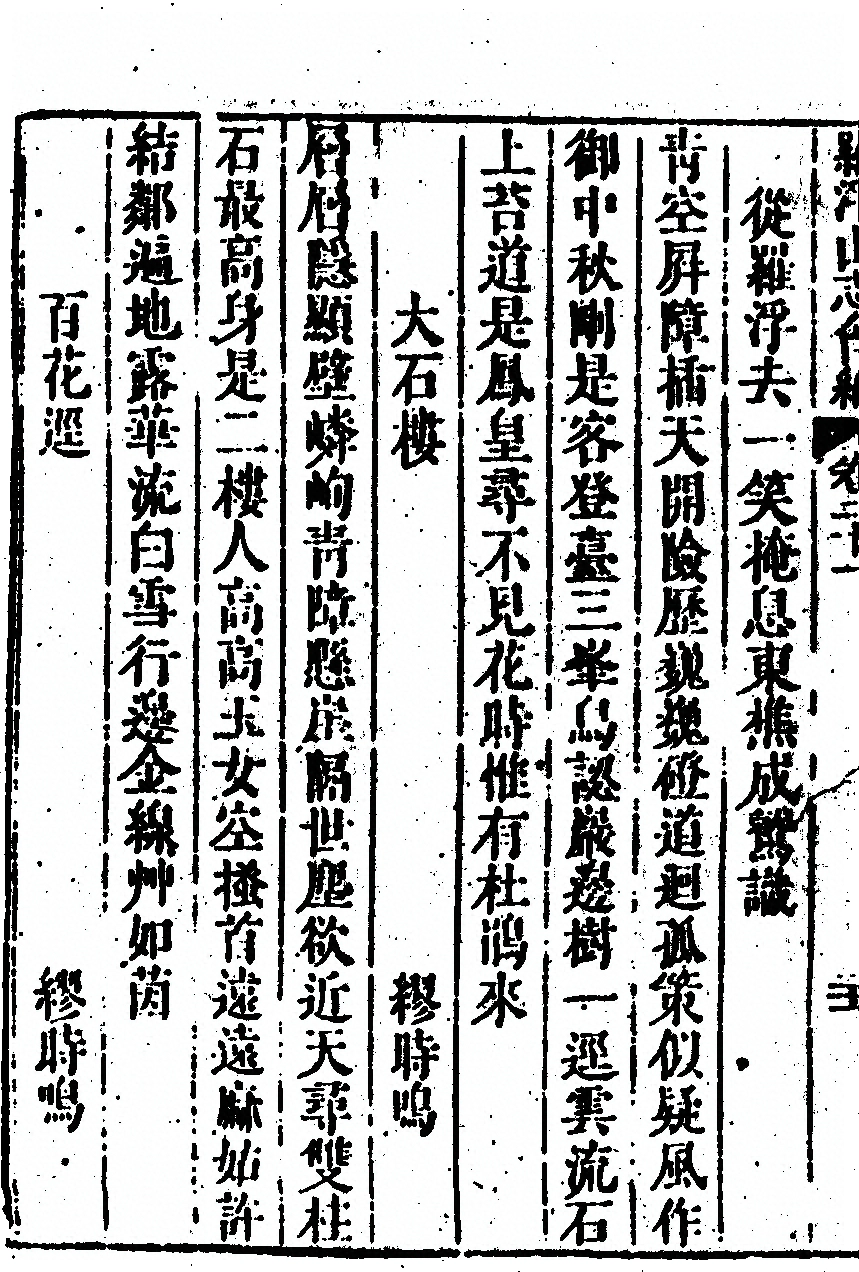 羅浮山志會編 卷二十一
從羅浮去一笑掩息東樵成舊識
青空屛障插天開險歷巍巍磴道迴孤策似疑風作
御中秋剛是客登臺三峯鳥認巖邊樹一逕雲流石
上苔道是鳳皇尋不見花時惟有杜鵑來
大石樓 繆時鳴
層層隱顯壁嶙峋靑嶂懸崖隔世塵欲近天尋雙柱
石最高身是二樓人高高玉女空搔首遠遠麻姑許
結鄰遍地露華流白雪行邊金線艸如茵
百花逕 繆時鳴